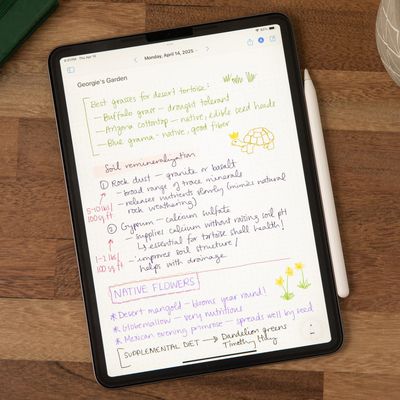 Monday, April 14, 2025
Georgie's Garden
Best grasses for desert tortoise:
– Buffalo grass – drought tolerant
– Arizona cottontop – native, edible seed heads
– Blue grama – native, good fiber
Soil remineralization
① Rock dust – granite or basalt
– broad range of trace minerals
– releases nutrients slowly (mimics natural
rock weathering)
5-10 lbs
100 sq ft
② Gypsum – calcium sulfate
– supplies calcium without raising soil pH
↳ essential for tortoise shell health!
– improves soil structure /
helps with drainage
1-2 lbs
100 sq ft
NATIVE FLOWERS
* Desert marigold – blooms year round!
* Globemallow – very nutritious
* Mexican evening primrose – spreads well by seed
SUPPLEMENTAL DIET → Dandelion greens
Timothy Hay